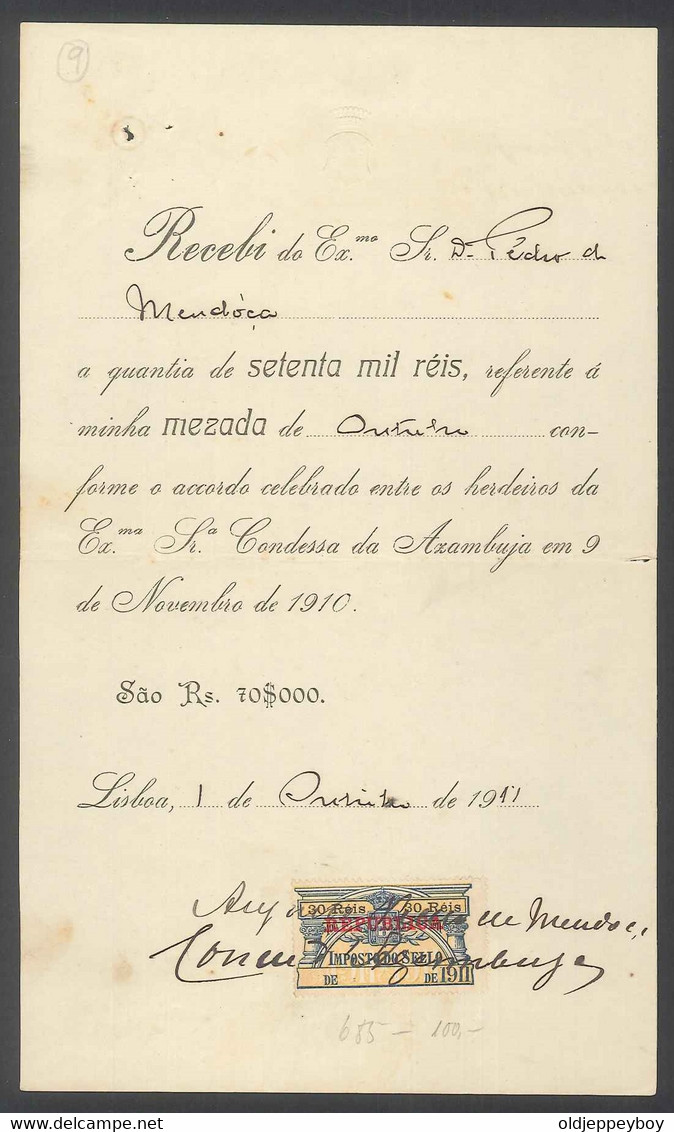 9
Recebi do Ex.mo Sr. D. Pedro de
Mendóça
a quantia de setenta mil réis, referente á
minha mezada de Outubro con-
forme o accordo celebrado entre os herdeiros da
Ex.ma Sr.a Condessa da Azambuja em 9
de Novembro de 1910.
São Rs. 70$000.
Lisboa, 1 de Outubro de 1911
30 Réis 30 Réis
REPUBLICA
de Mendoça
IMPOSTO DO SELLO
DE DE 1911
685 - 100,-
oldjeppeyboy